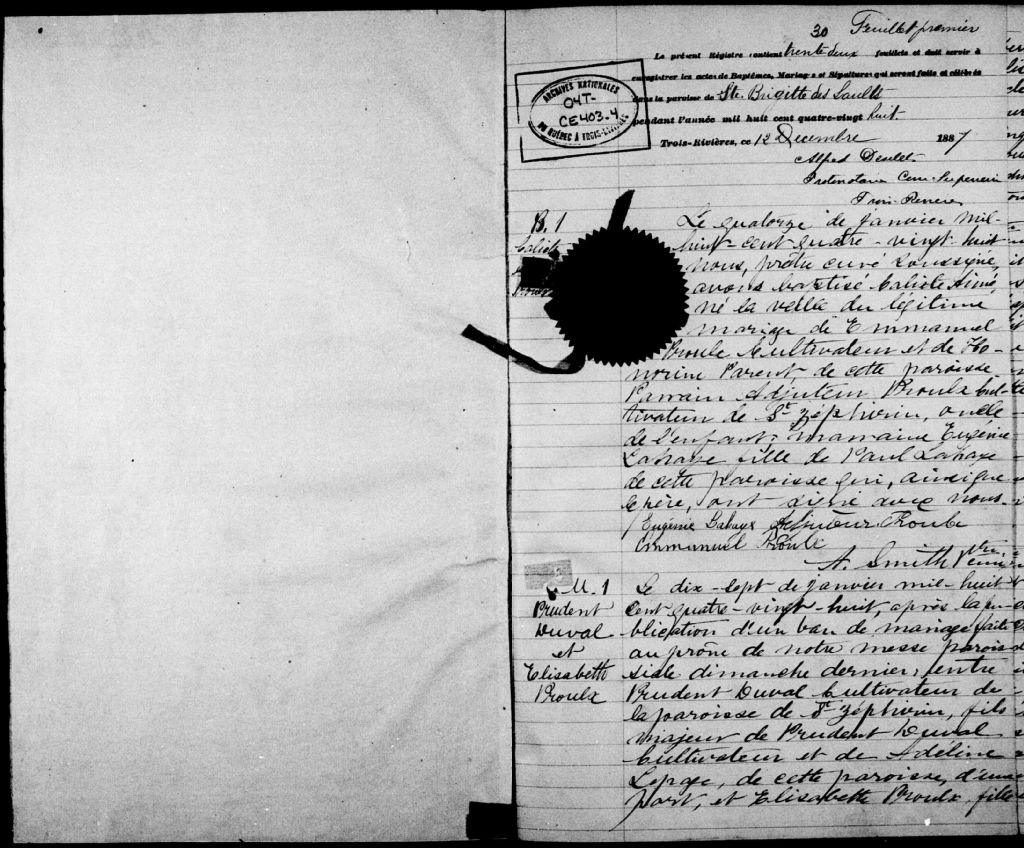 30 Feuillet premier
Le présent Régistre contient trente deux feuillets et doit servir à
enregistrer les actes de Baptêmes, Mariages et Sépultures qui seront faits et célébrés
dans la paroisse de Ste Brigitte des Saults
pendant l'année mil huit cent quatre-vingt huit
Trois-Rivières, ce 12 Décembre 1887
Alfred Désilets
Protonotaire Cour Supérieure
Trois Rivières
ARCHIVES NATIONALES
04T-
CE403-4
DU QUÉBEC À TROIS-RIVIÈRES
B. 1
Caliste
Proulx
Le quatorze de janvier mil-
huit-cent-quatre-vingt huit
nous, prêtre curé soussigné,
avons baptisé Caliste Aimé,
né la veille du légitime
mariage de Emmanuel
Proulx Cultivateur et de Ho-
norine Parent, de cette paroisse.
Parrain Adjuteur Proulx Cul-
tivateur de St Zéphirin, oncle
de l'enfant; marraine Eugénie
Lahaye fille de Paul Lahaye
de cette paroisse qui, ainsi que
le père, ont signé avec nous.
Eugénie Lahaye Adjuteur Proulx
Emmanuel Proulx
A. Smith Ptre,
curé
M. 1
Prudent
Duval
et
Elisabeth
Proulx
Le dix-sept de janvier mil-huit
cent quatre-vingt-huit, après la pu-
blication d'un ban de mariage faite
au prône de notre messe parois-
siale dimanche dernier, entre
Prudent Duval Cultivateur de
la paroisse de St Zéphirin, fils
majeur de Prudent Duval
Cultivateur et de Adéline
Lepage, de cette paroisse, d'une
part, et Elisabeth Proulx, fille